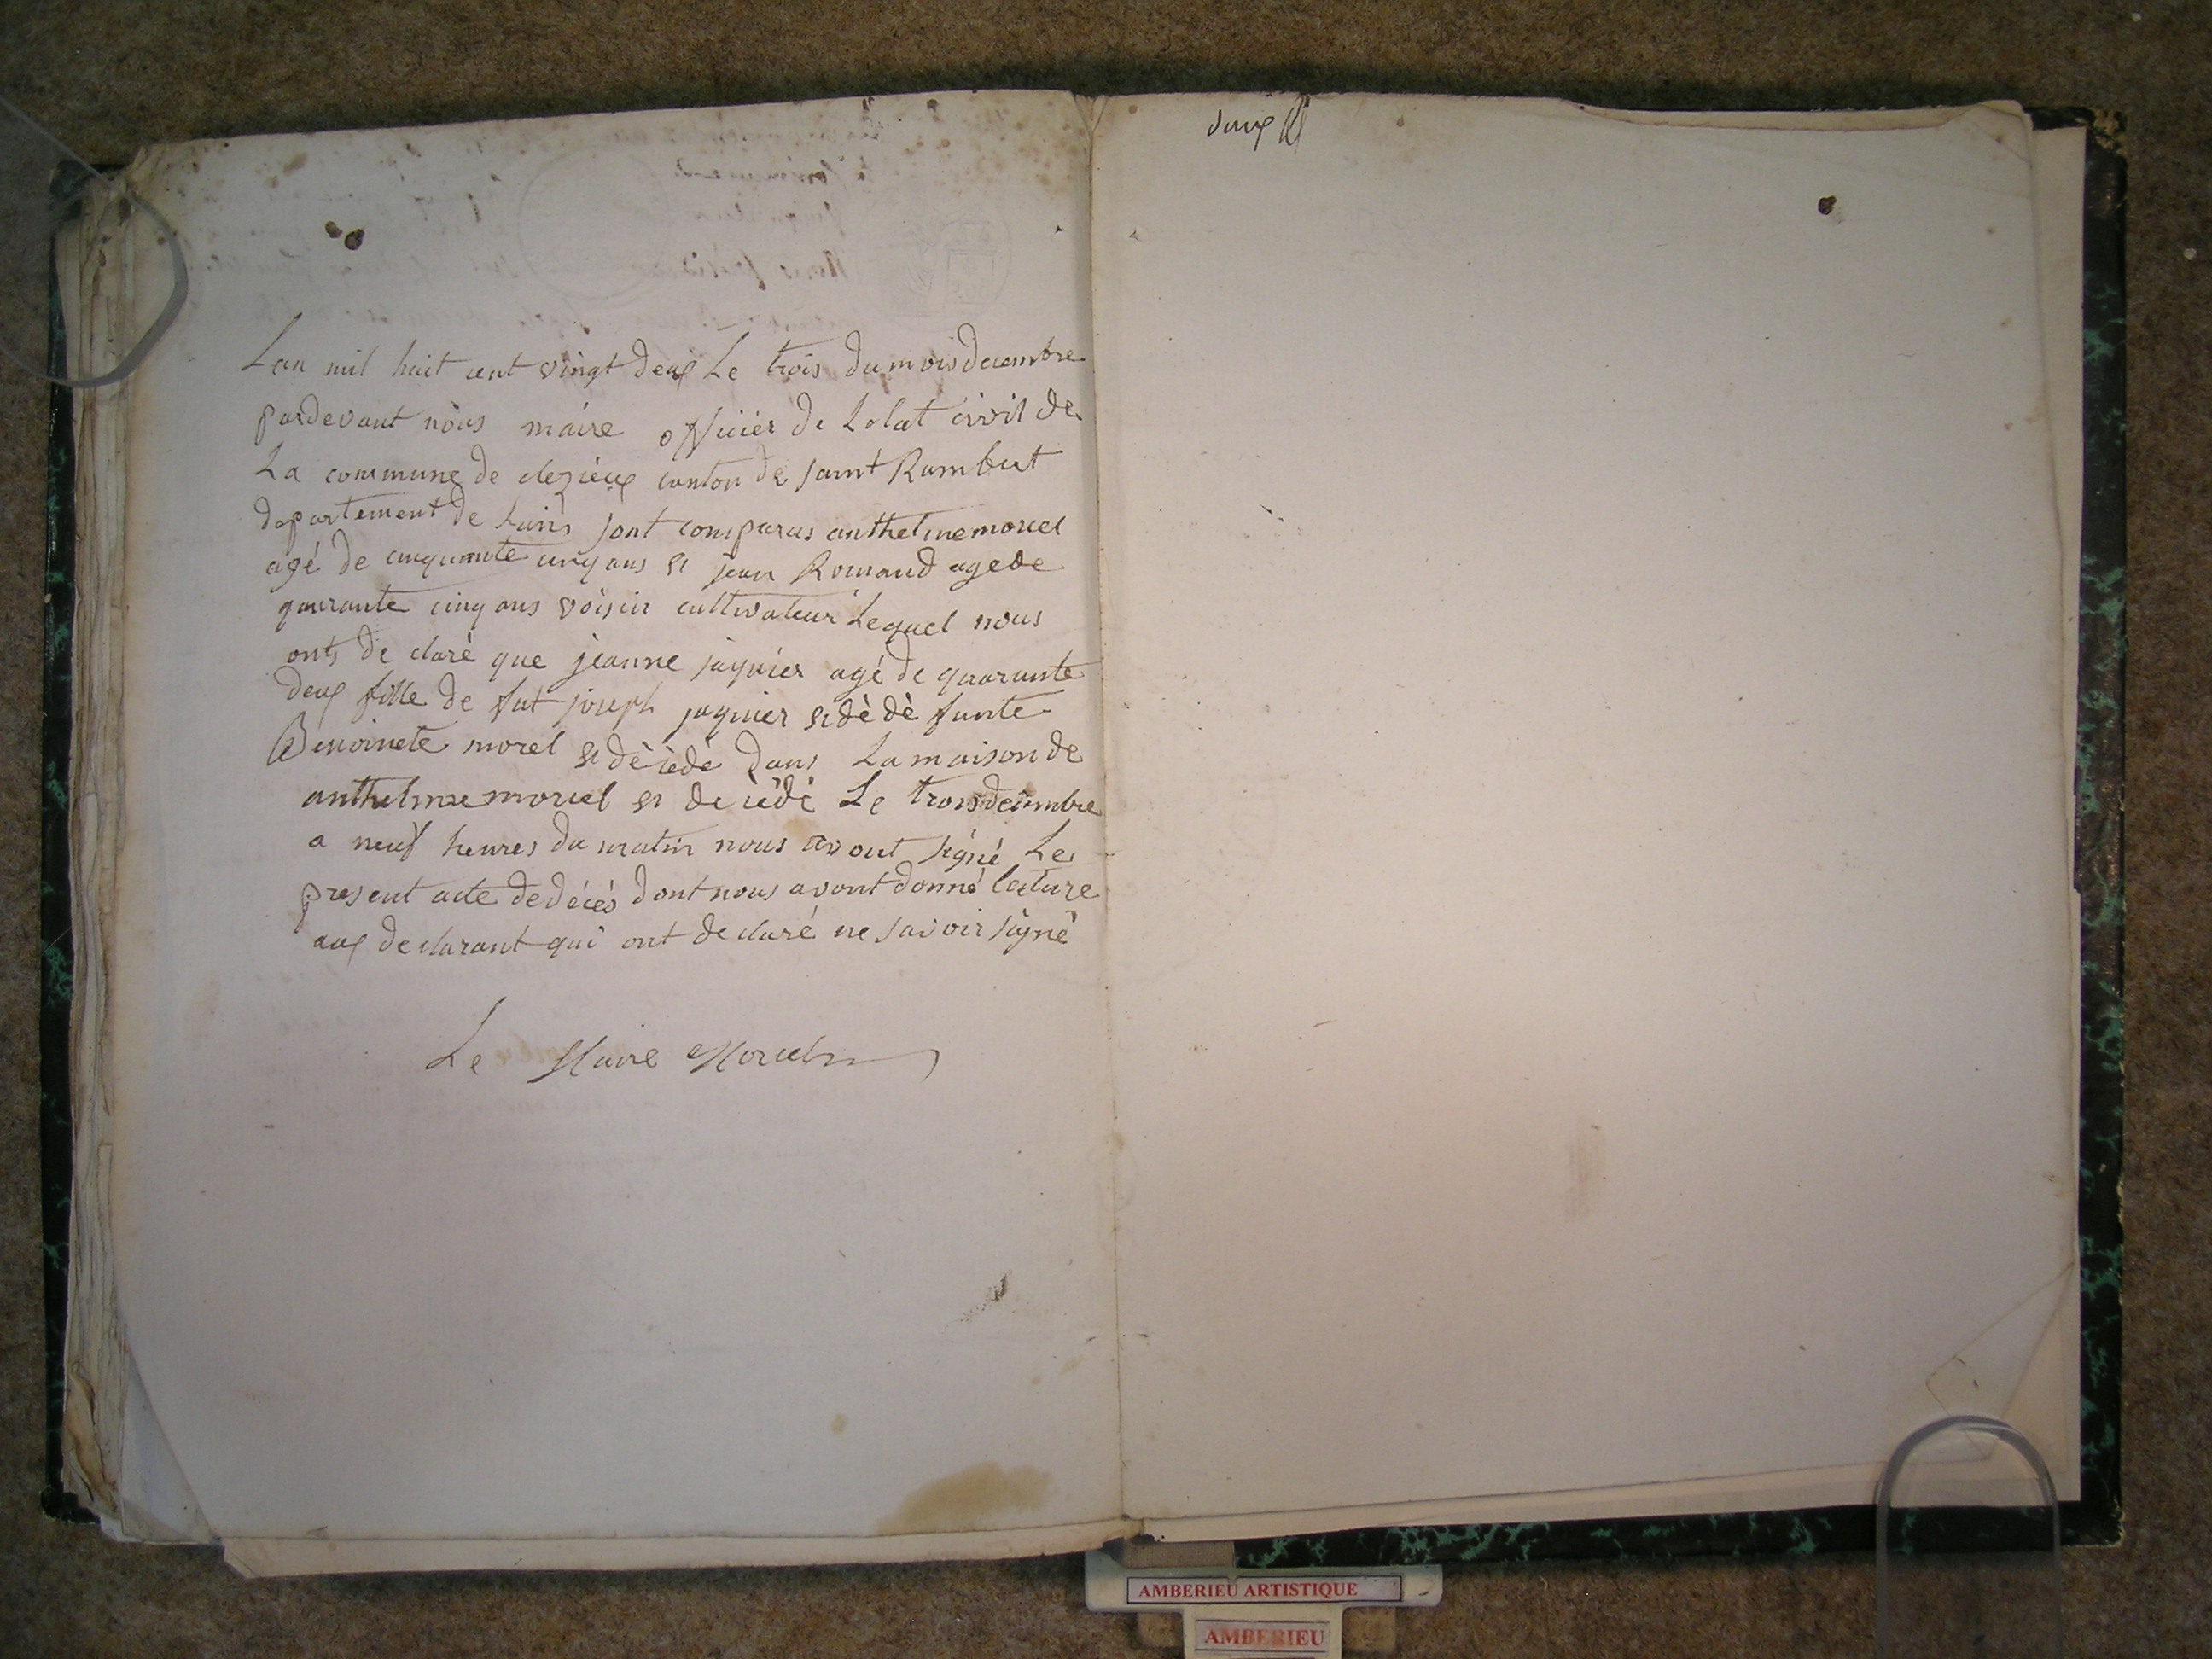 Lan mil huit cent vingt deux Le trois du mois decembre
pardevant nous maire officier de Letat civil de
La commune de clezieux canton de saint Rambert
departement de Lain sont comparus anthelme morcel
agé de cinquante cinq ans et jean Romand agede
quarante cinq ans voisin cultivateur Lequel nous
ont de claré que jeanne jaquier agé de quarante
deux fille de fut joseph jaquier et dè dè funte
Benoinete morel et dècèdè dans La maison de
anthelme morcel et decèdè Le trois decembre
a neuf heures du matin nous avont signé Le
present acte dedécès dont nous avont donné lecture
aux declarant qui ont declaré ne savoir signé
Le Maire Morcel
AMBERIEU ARTISTIQUE
AMBERIEU